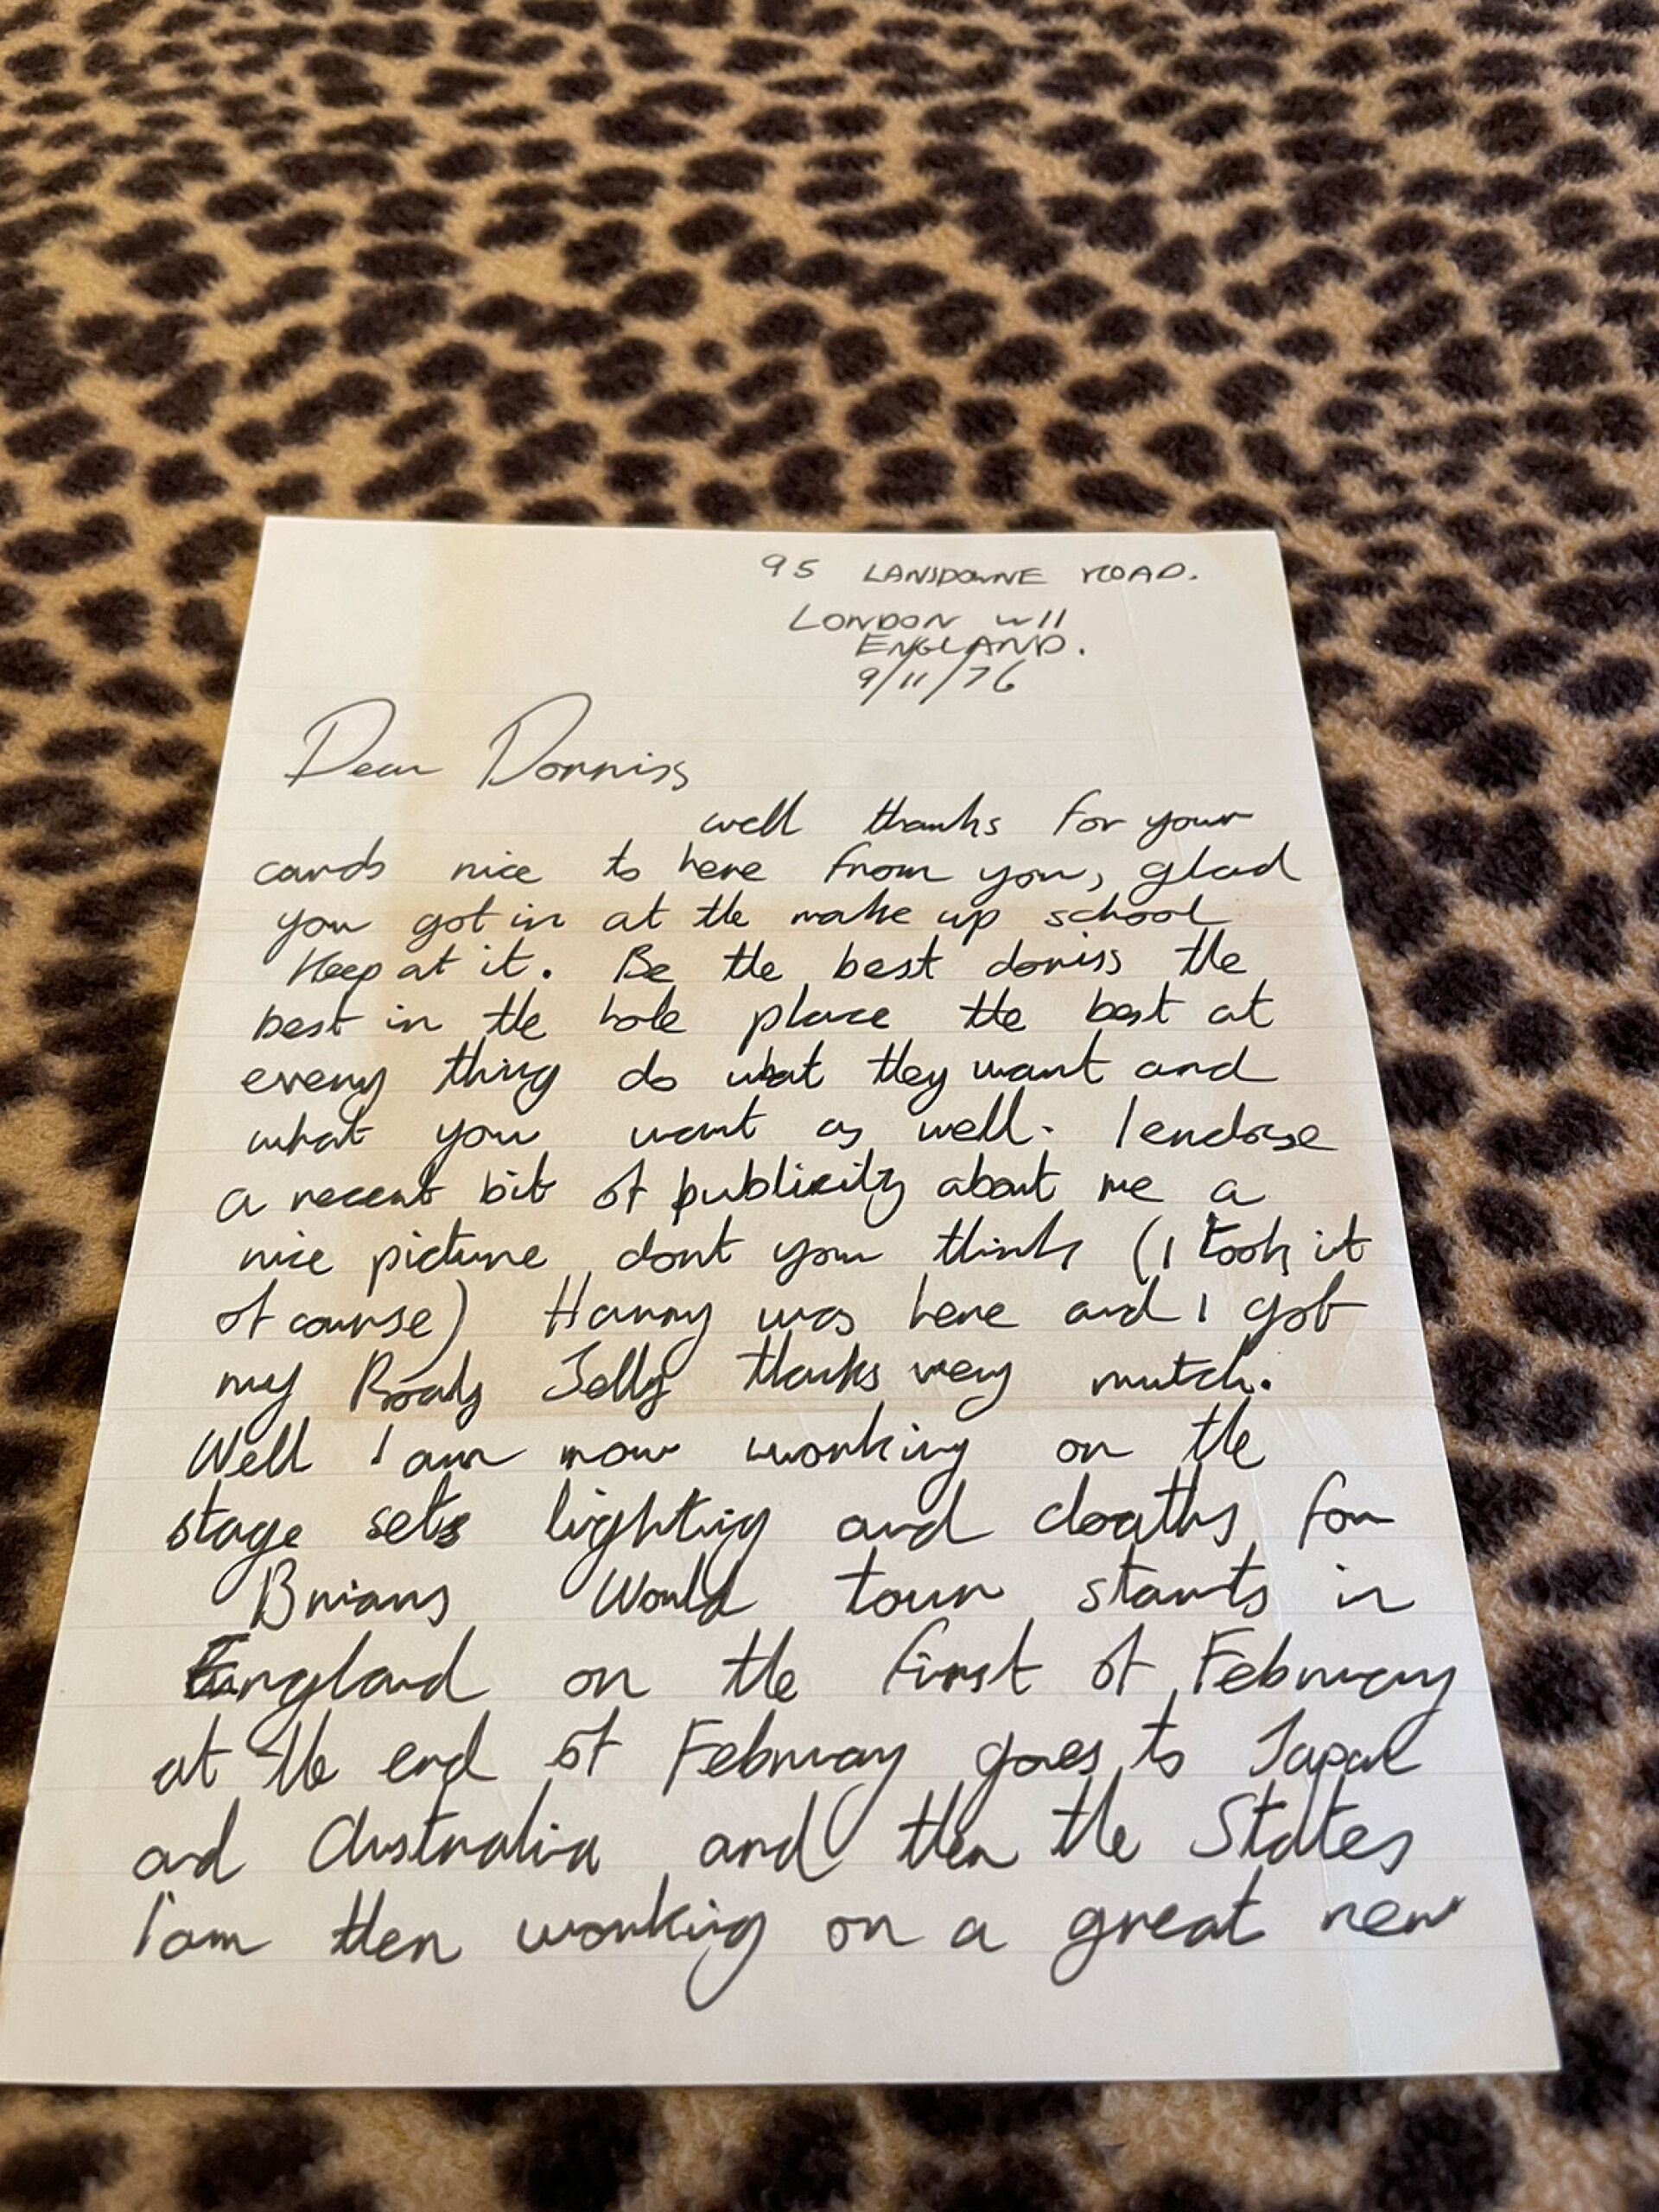 95 LANSDOWNE ROAD.
LONDON W11
ENGLAND.
9/11/76
Dear Dorniss
well thanks for your
cards nice to here from you, glad
you got in at the make up school
Keep at it. Be the best doriss the
best in the hole place the best at
every thing do what they want and
what you want as well. I endorse
a recent bit of publicity about me a
nice picture dont you think (I took it
of course) Harry was here and I got
my Roaly Jelly thanks very mutch.
Well I am now working on the
stage sets lighting and cloaths for
Brians World tour starts in
England on the first of February
at the end of February goes to Japan
and Australia and then the States
I'am then working on a great new